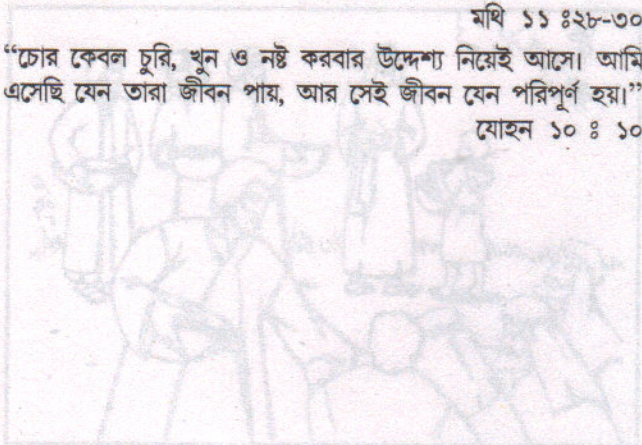 মথি ১১ ঃ২৮-৩০
“চোর কেবল চুরি, খুন ও নষ্ট করবার উদ্দেশ্য নিয়েই আসে। আমি
এসেছি যেন তারা জীবন পায়, আর সেই জীবন যেন পরিপূর্ণ হয়।”
যোহন ১০ ঃ ১০